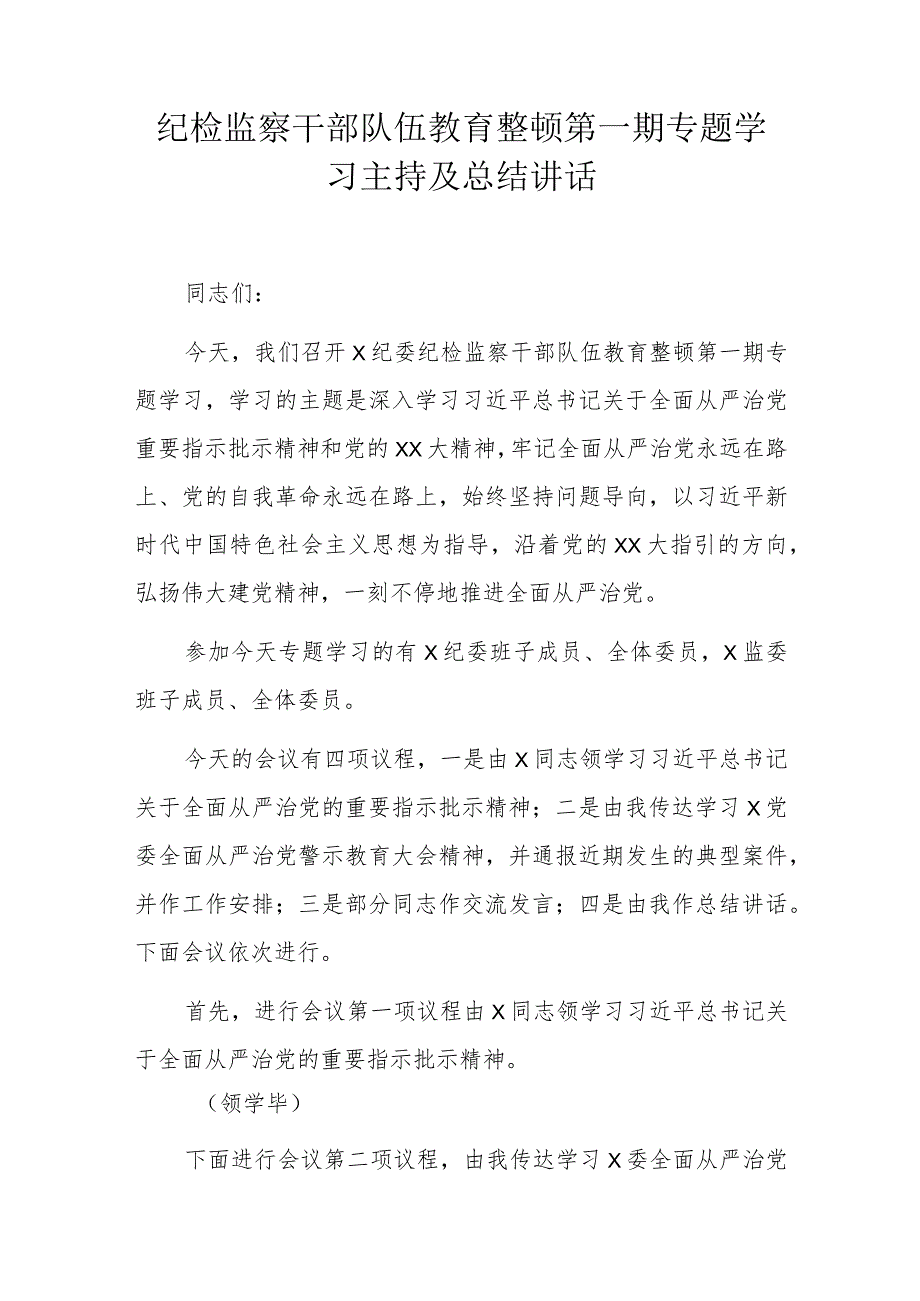 纪检监察干部队伍教育整顿第一期专题学
习主持及总结讲话
同志们：
今天，我们召开X纪委纪检监察干部队伍教育整顿第一期专
题学习，学习的主题是深入学习习近平总书记关于全面从严治党
重要指示批示精神和党的XX大精神，牢记全面从严治党永远在路
上、党的自我革命永远在路上，始终坚持问题导向，以习近平新
时代中国特色社会主义思想为指导，沿着党的XX大指引的方向，
弘扬伟大建党精神，一刻不停地推进全面从严治党。
参加今天专题学习的有X纪委班子成员、全体委员，X监委
班子成员、全体委员。
今天的会议有四项议程，一是由X同志领学习习近平总书记
关于全面从严治党的重要指示批示精神；二是由我传达学习X党
委全面从严治党警示教育大会精神，并通报近期发生的典型案件，
并作工作安排；三是部分同志作交流发言；四是由我作总结讲话。
下面会议依次进行。
首先，进行会议第一项议程由X同志领学习习近平总书记关
于全面从严治党的重要指示批示精神。
（领学毕）
下面进行会议第二项议程，由我传达学习X委全面从严治党